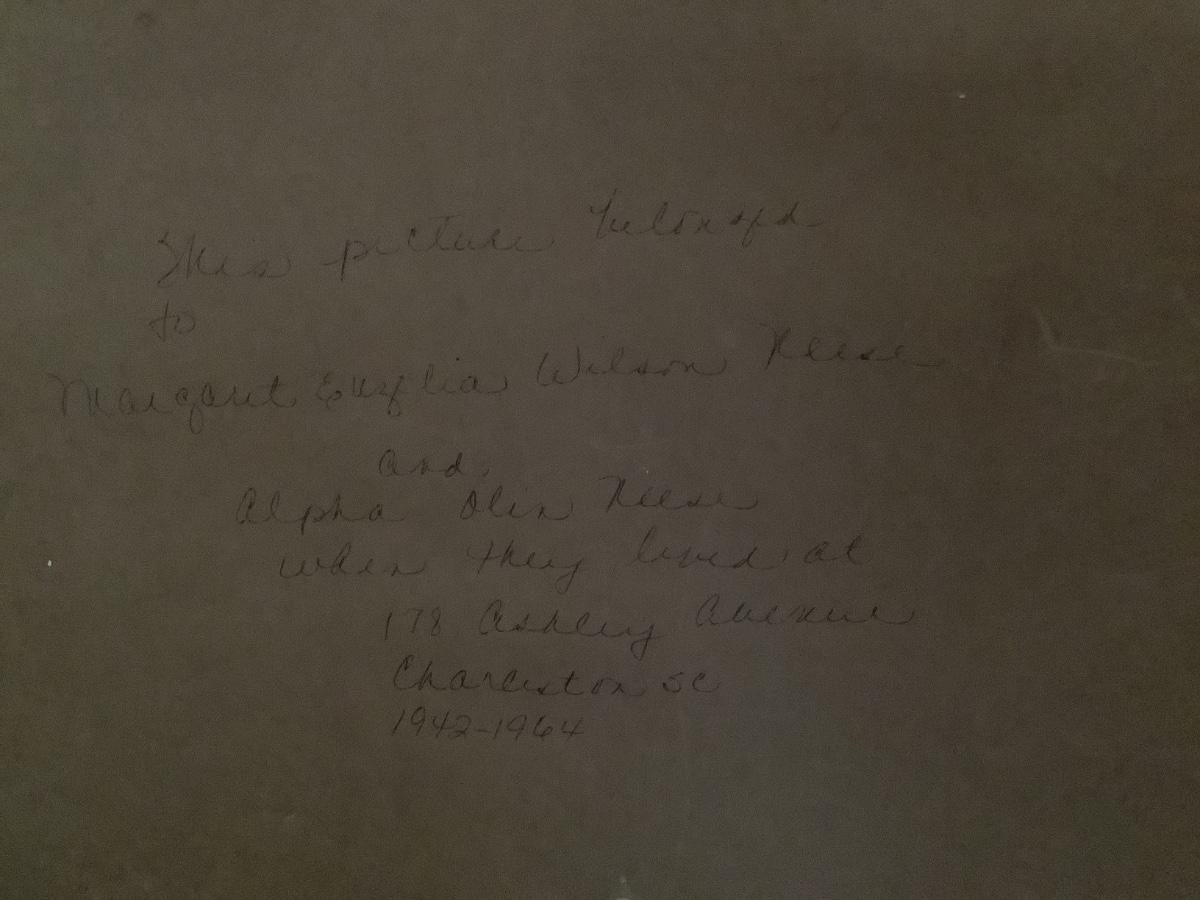 This picture belonged
to
Margaret Wilson Reese
and
Alpha Olin Reese
when they lived at
178 Ashley Avenue
Charleston SC
1942-1964